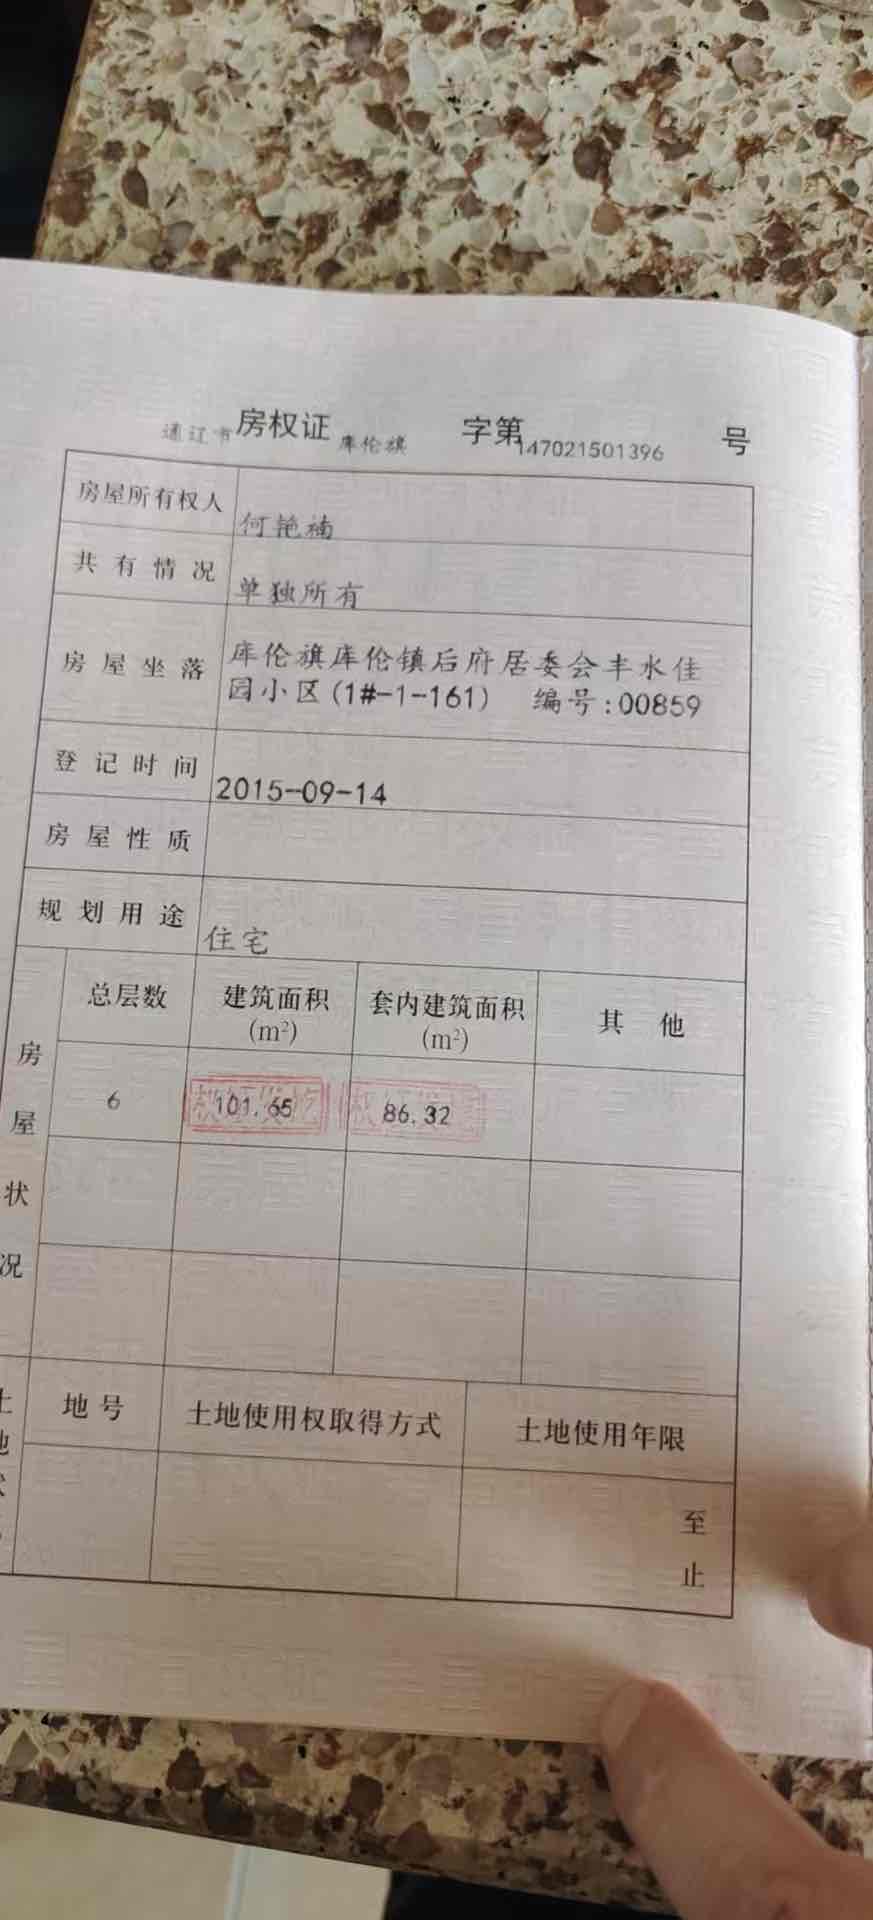 通辽市房权证 库伦旗 字第147021501396 号
房屋所有权人 何艳楠
共有情况 单独所有
房屋坐落 库伦旗库伦镇后府居委会丰水佳
园小区(1#-1-161) 编号:00859
登记时间 2015-09-14
房屋性质
规划用途 住宅
房屋状况
总层数 建筑面积(m²) 套内建筑面积(m²) 其他
6 101.65 86.32
地号 土地使用权取得方式 土地使用年限
至
止